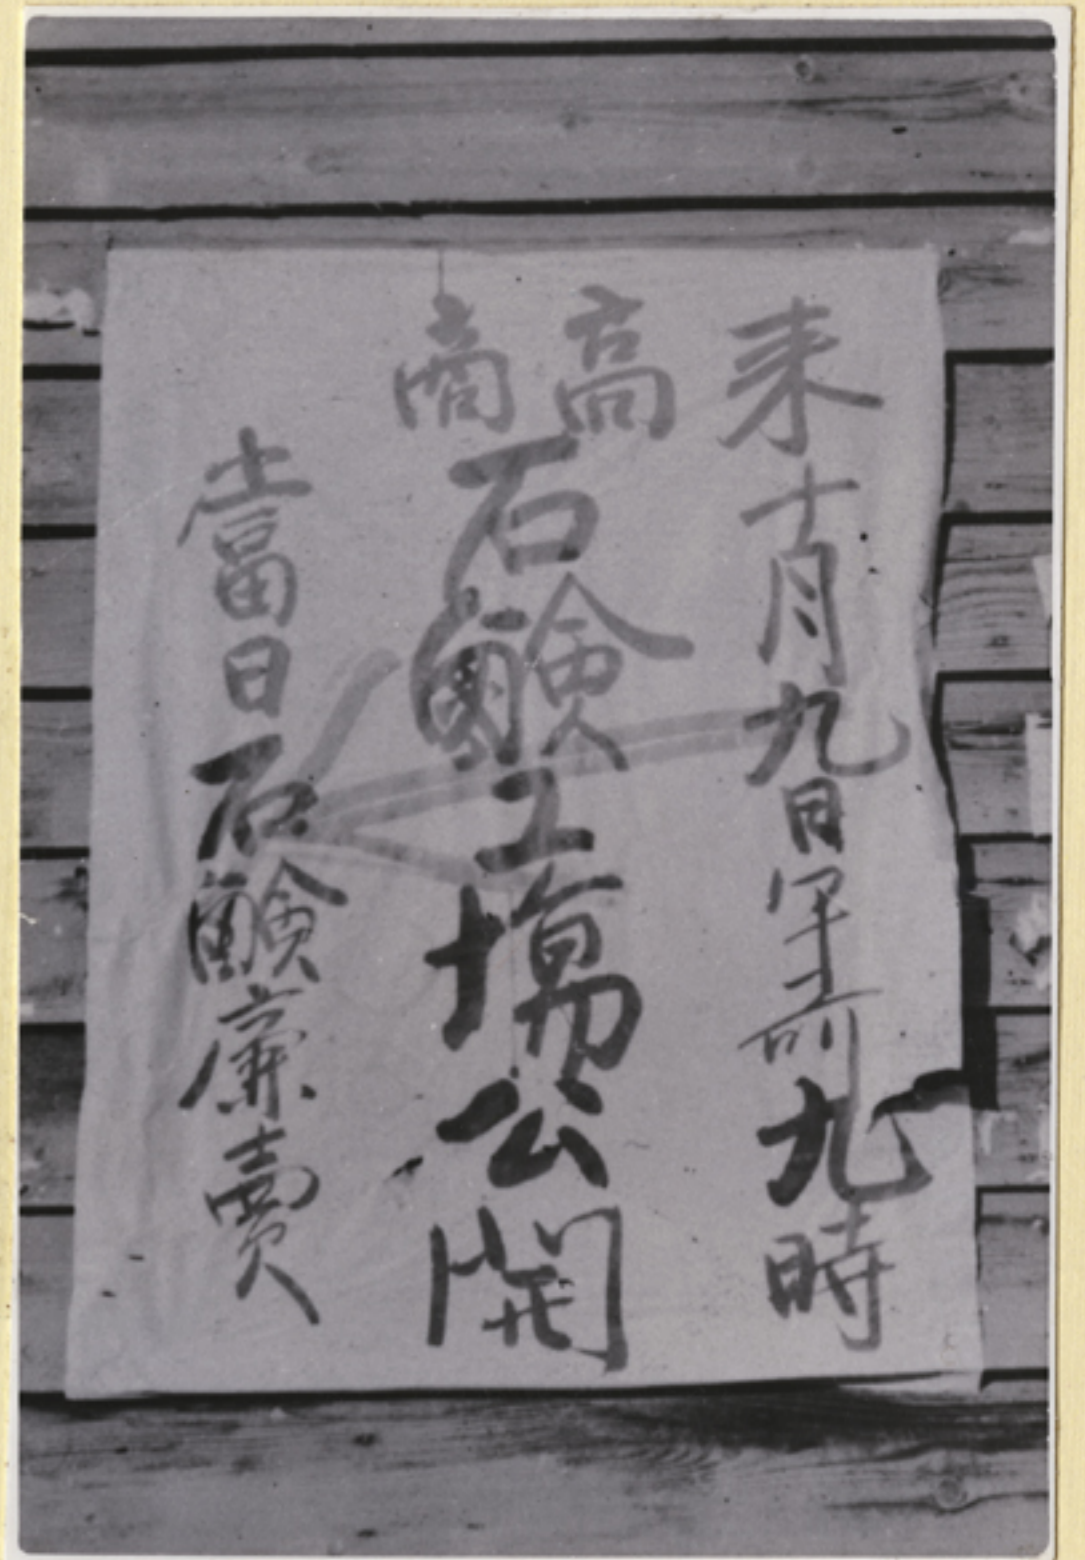 来十月九日午前九時
高商
石鹸工塲公開
當日石鹸廉賣